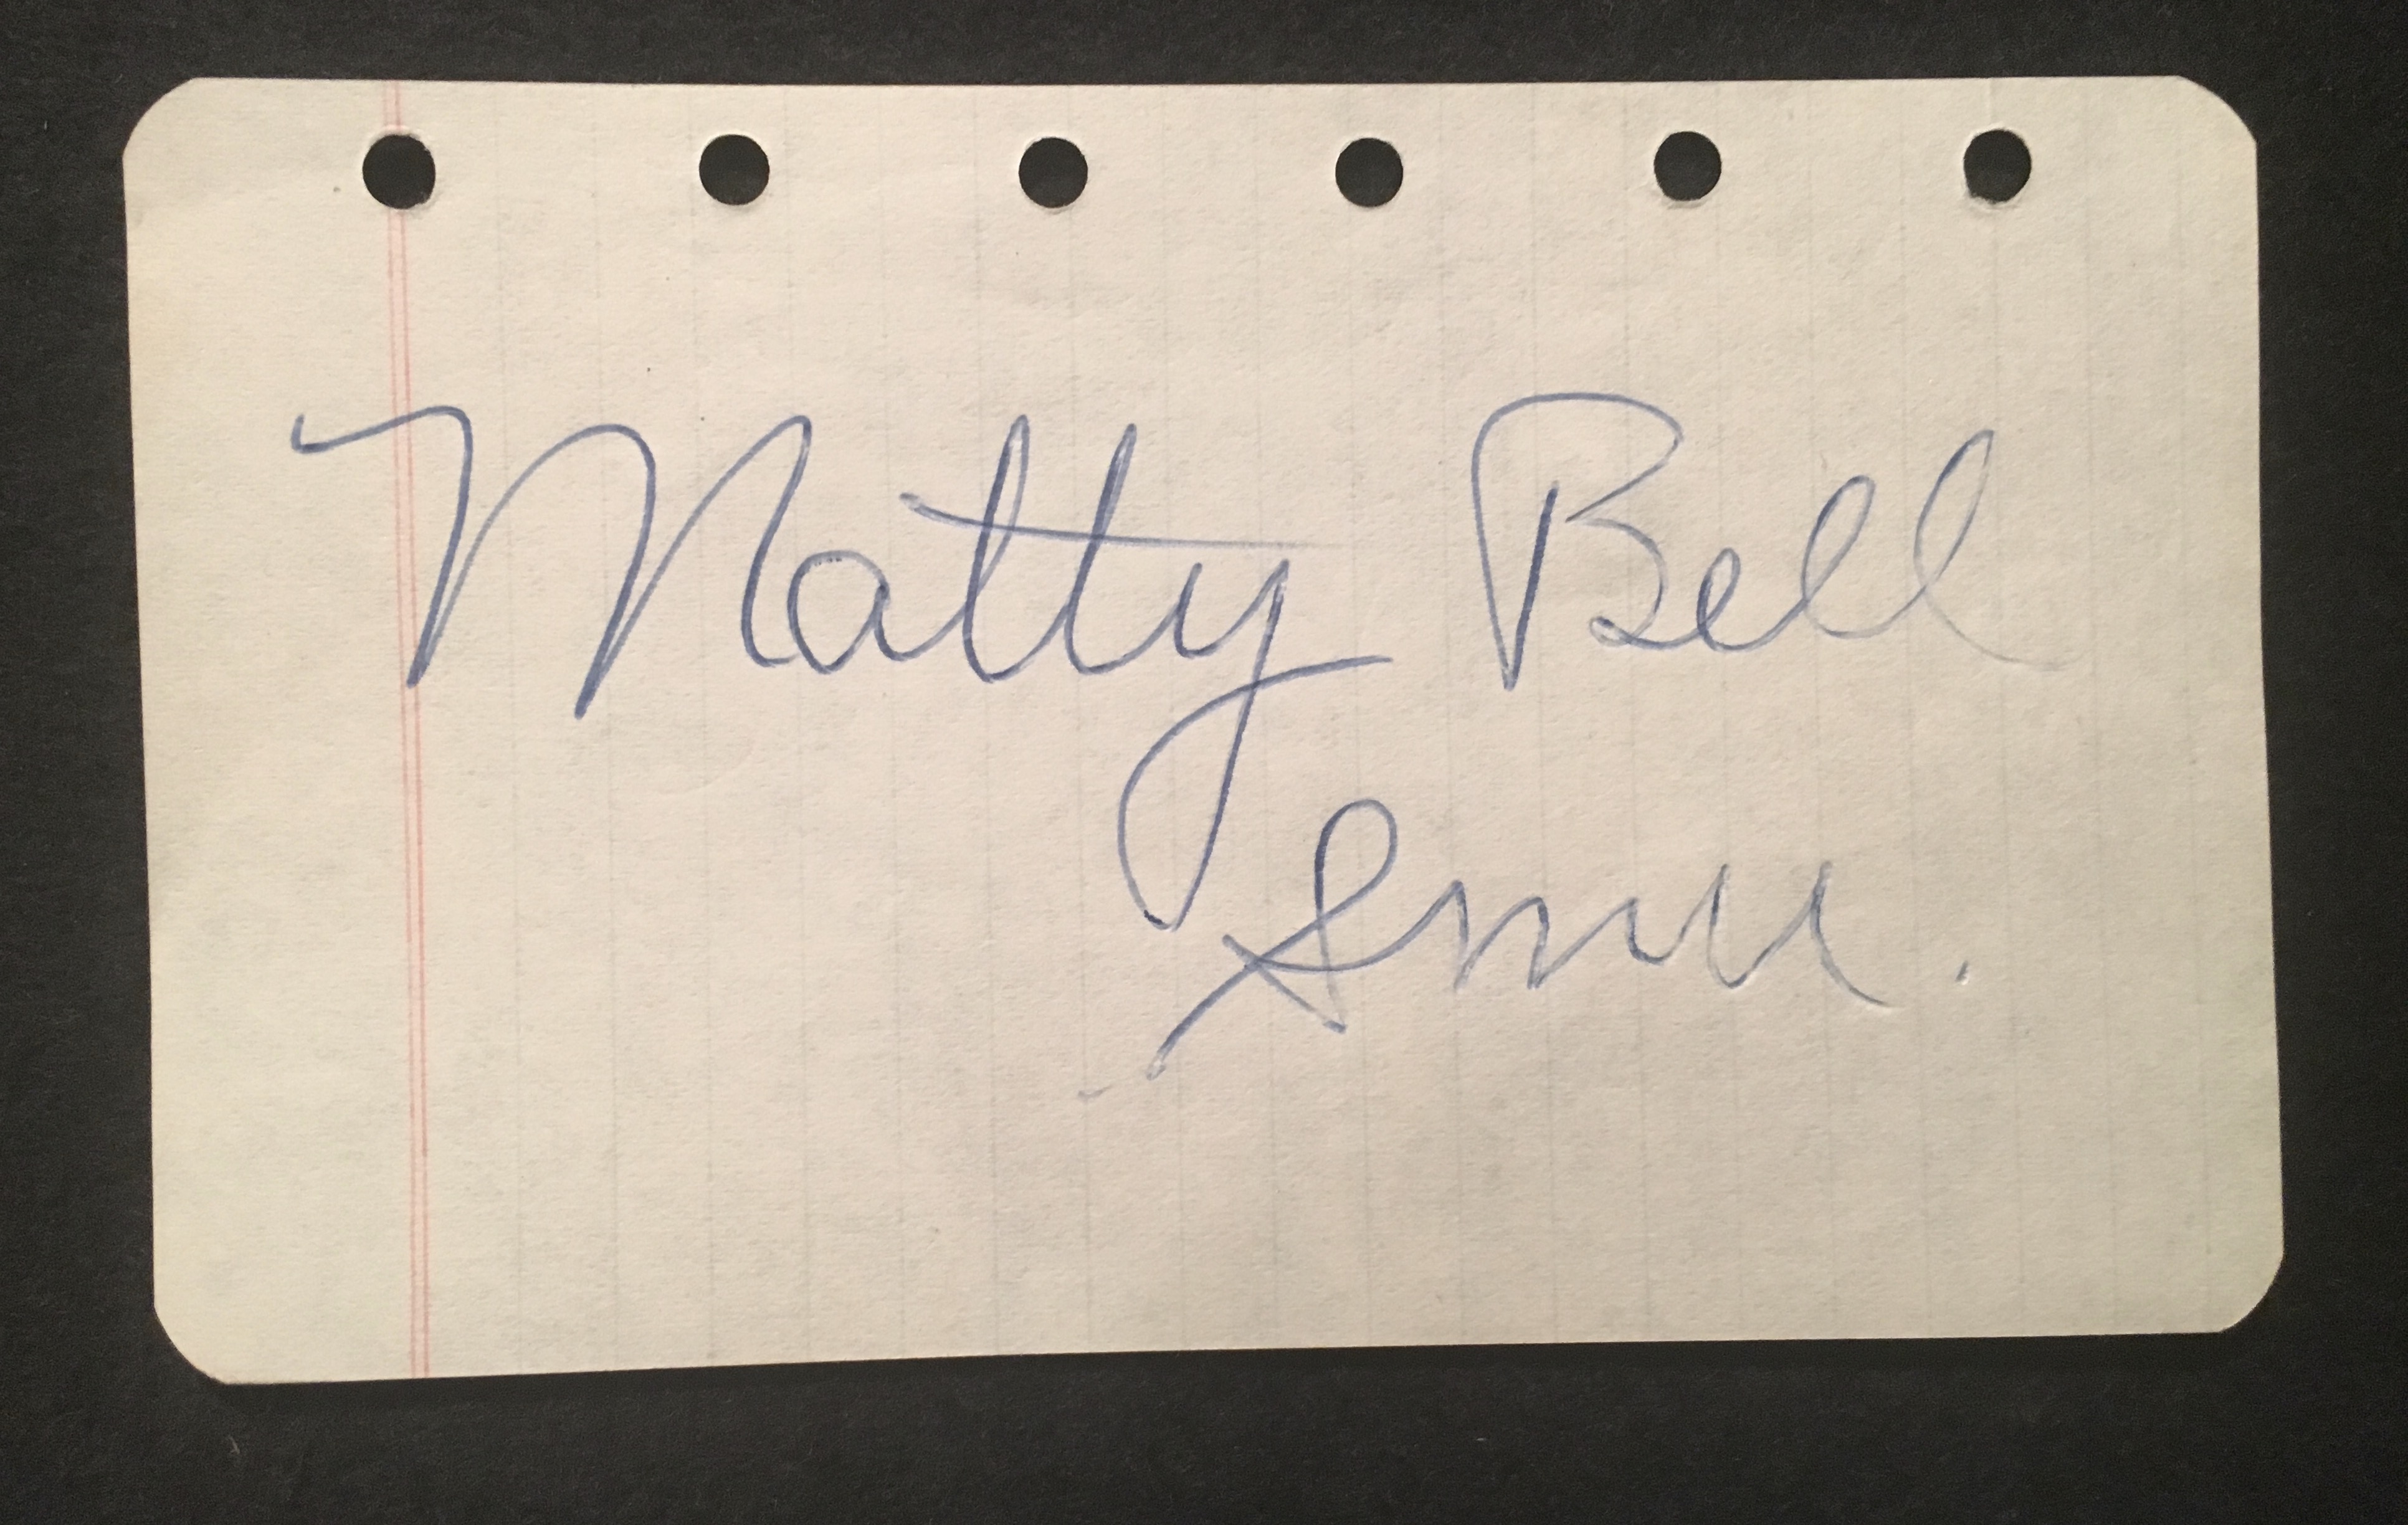 Matty Bell
SMU.